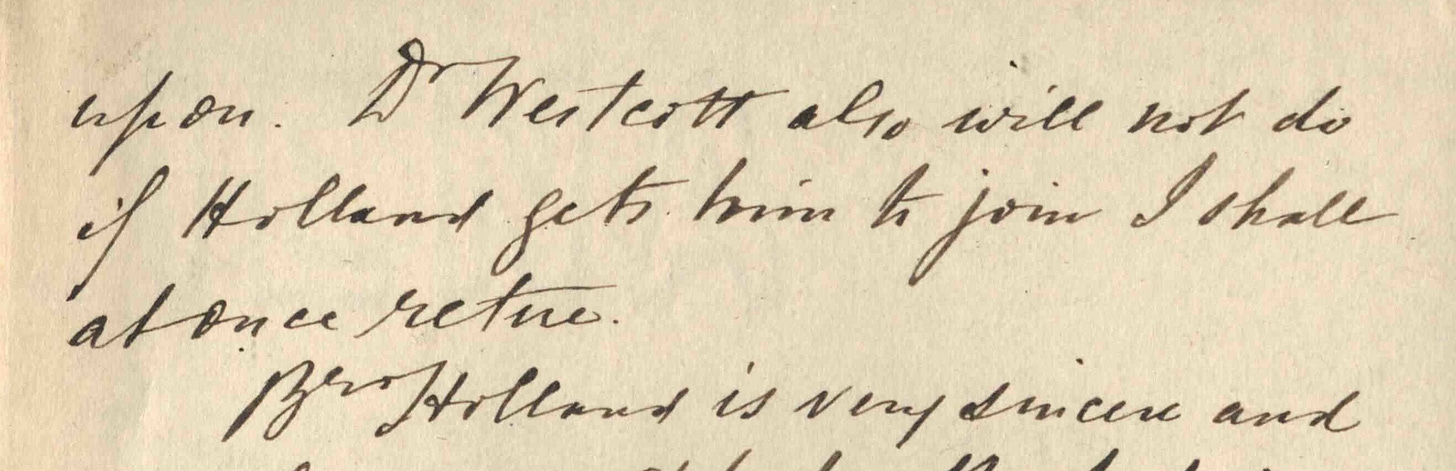 upon. Dr Westcott also will not do
if Holland gets him to join I shall
at once retire.
Bro Holland is very sincere and